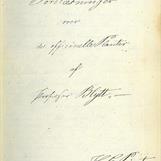 Forelæsninger
over
de officinelle Planter
af
Professor Blytt.